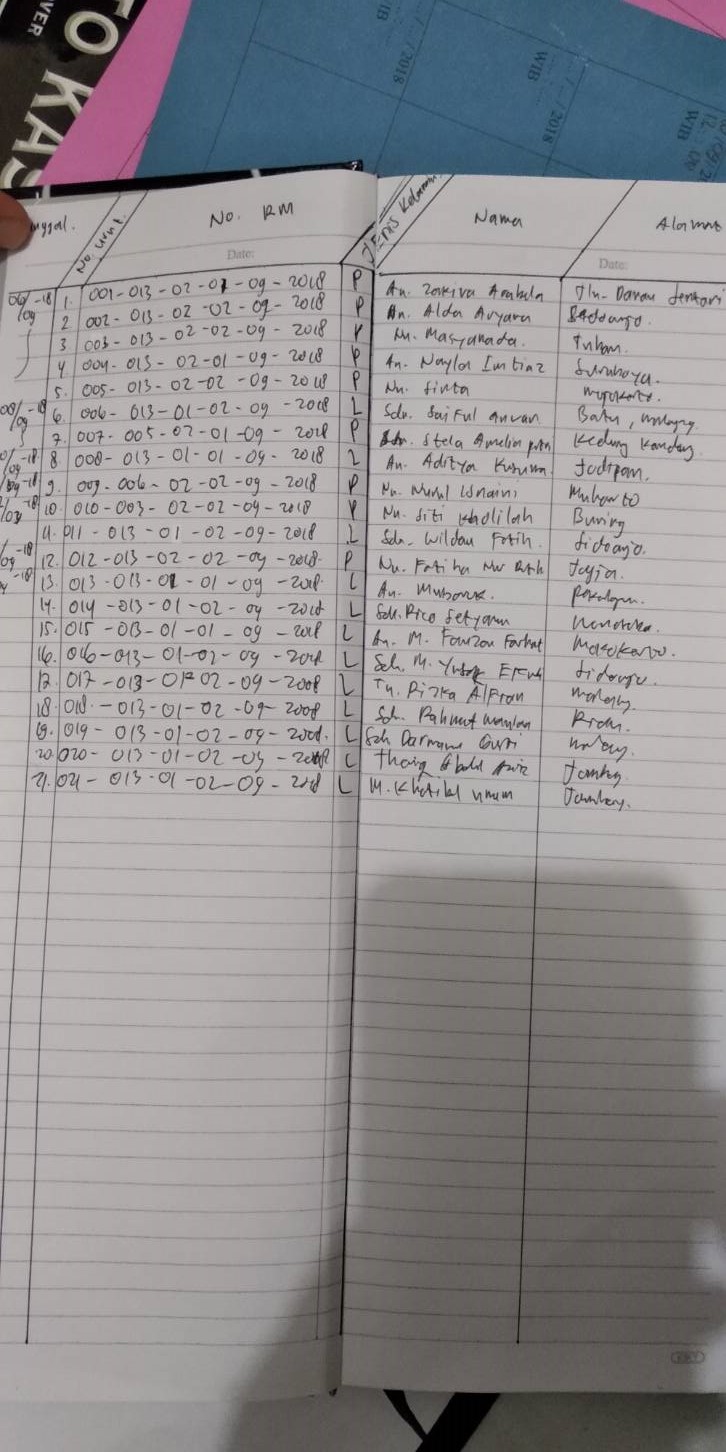 TO KAS
VER
WIB
/2018
WIB
/2018
WIB
nggal. No. Urut. No. RM Jenis Kelamin Nama Alamat
Date: Date:
06/09-18 1. 001-013-02-01-09-2018 P An. Zakiva Arabela Jln. Danau Sentani
2 002-013-02-02-09-2018 P An. Alda Aryara Sidoarjo.
3 003-013-02-02-09-2018 P Nn. Masyanada. Tuban.
4 004-013-02-01-09-2018 P An. Nayla Imtiaz Surabaya.
5. 005-013-02-02-09-2018 P Nn. Sinta
08/09-18 6. 006-013-01-02-09-2018 L Sdn. Saiful anvan Batu, malang
7. 007-005-02-01-09-2018 P Stela Amelia Kedung Kandang
-18 8 008-013-01-01-09-2018 L An. Aditya Kusuma. Jodipan.
-18 9. 009-006-02-02-09-2018 P Nn. Nurul Isnaini Muharto
-18 10. 010-003-02-02-09-2018 P Nn. Siti Kholilah Buring
11. 011-013-01-02-09-2018 L Sdn. Wildan Fatih. Sidoarjo.
-18 12. 012-013-02-02-09-2018. P Nn. Fatiha Nur Jogja.
13. 013-013-01-01-09-2018. L An. Mubarok.
14. 014-013-01-02-09-2018 L Sdn. Rico Setyawan
15. 015-013-01-01-09-2018 L An. M. Fauzan Farhat
16. 016-013-01-02-09-2018 L Sdn. M. Yusuf Sidoarjo.
17. 017-013-01-02-09-2008 L Tn. Rizka Alfian malang
18. 018-013-01-02-09-2008 L Sdn. Rahmat maulan
19. 019-013-01-02-09-2008. L Sdn Darmawan malang.
20. 020-013-01-02-09-2018 L Abdul Aziz
21. 021-013-01-02-09-2018 L M. Khotibul umam